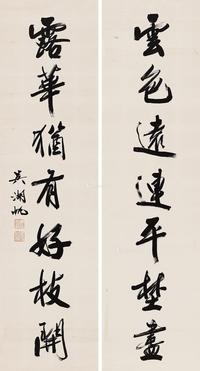 雲色遠連平楚盡
露華猶有好枝開
吳湖帆